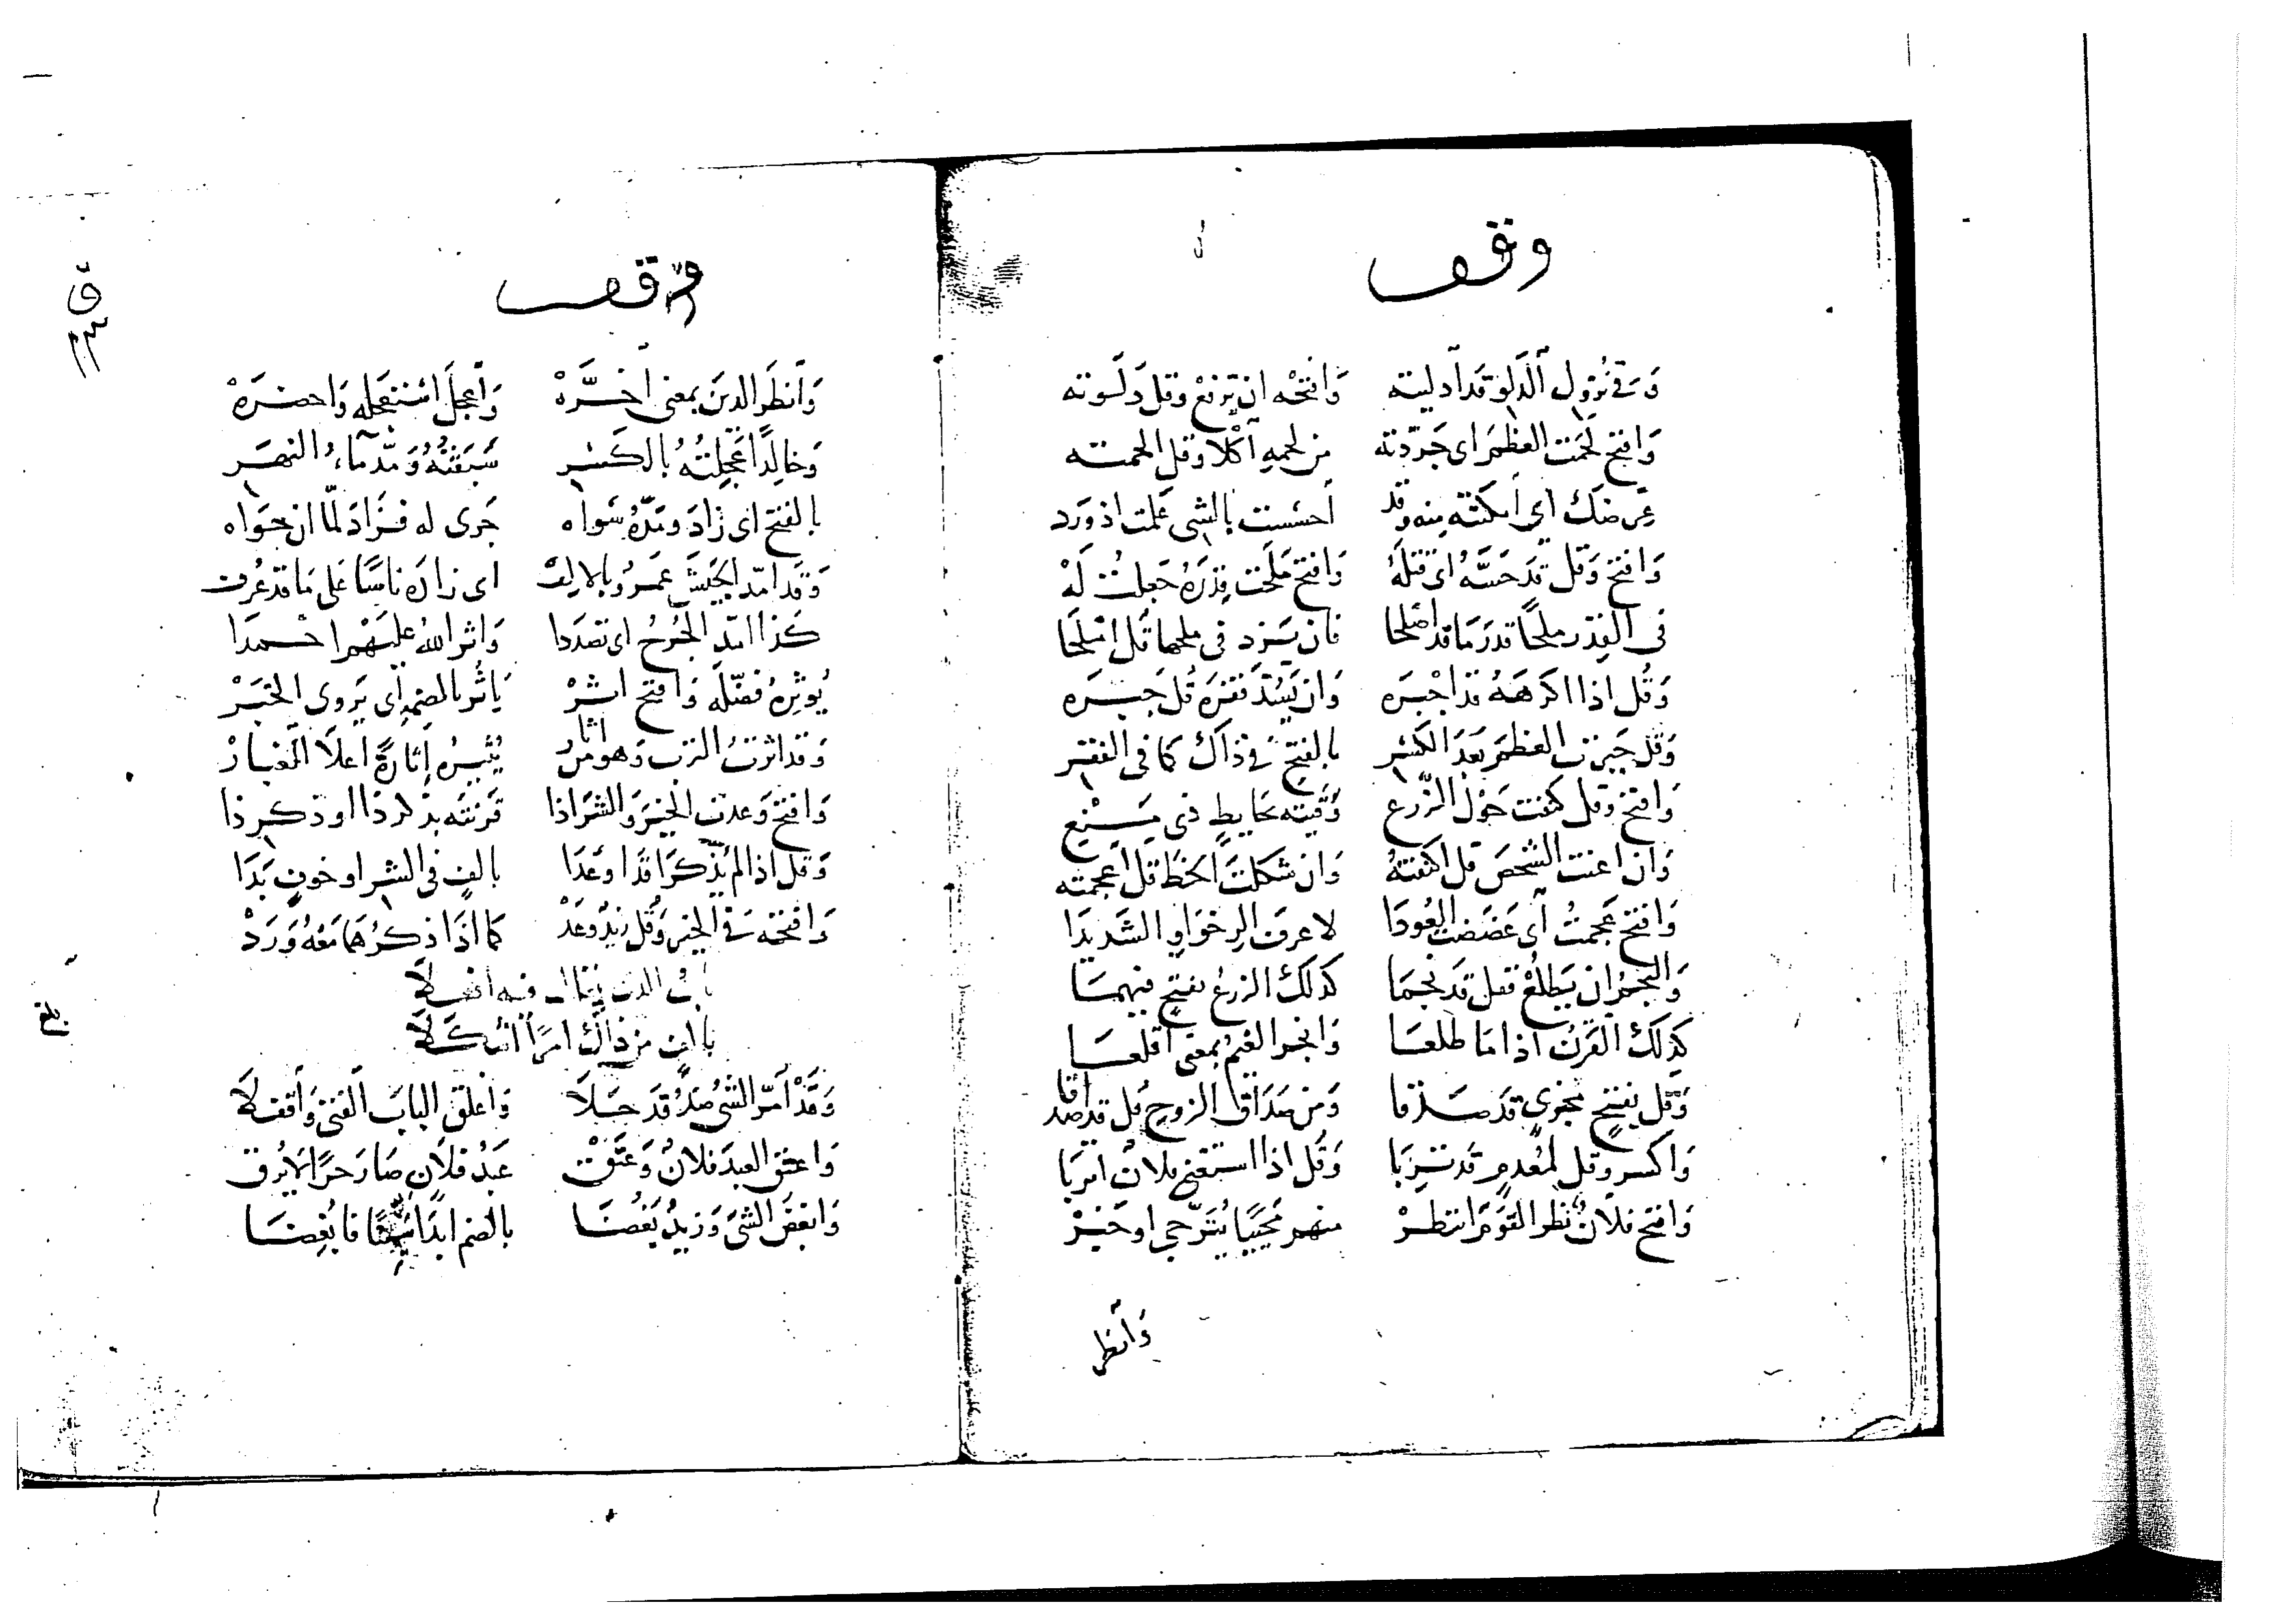 وقف
وَفي نُزُول الدَلو قد اَدليته وَافتحْه ان تَرفعْ وقل دَلَوته
وَافتح لَحَمت العظمَ اى جَرّدته من لحمهِ اَكْلا وقل الحمته
عِرضَكَ اى اَمكنته منه وقد اَحسَسْت بالشى عَلمت اذ وَرد
وَافتح وَقل قد حَسَّهُ اى قتلَهُ وَافتح مَلَحت قِدرَهُ جَعلتُ لَهْ
فى القِدر ملحًا قدرَ مَا قد اَصْلحا فان يَزد فى ملحها قُل اَمْلَحَا
وَقُل اذا اكرَهَهُ قد اجْبَره وَان يَسُدَّ فقرَه قُل جَبَره
وَقل جَبَرت العظمَ بَعدَ الكسْر بالفتحِ فى ذاك كما فى الفقر
وَافتح وقل كنفت حَوْل الزّرع وَقيته بحايطٍ ذى مَنع
وَان اعنت الشخصَ قل اكنفتهُ وَان شكلتَ الخط قل اعجمته
وَافتح عَجمتُ اَى عَضَضت العُودَا لاعرفَ الرِخوَ اوِ الشَديدَا
وَالنجمُ ان يَطلعْ فقل قد نجمَا كذلك الزرعُ بفتحٍ فيهمَا
كذلك القَرنُ اذا مَا طلعَا وَانجم الغيمُ بمعنى اقلعَا
وَقل بفتحٍ مخبرى قد صَدقا وَمن صَدَاق الزوجِ قُل قد اصدقا
وَاكسر وقل لمُعدمٍ قد تَرِبَا وَقُل اذا استغنى فلانٌ اَتربَا
وَافتح فلانٌ نظر القَومَ انتظرْ منهم مَجيًا يُتَرَّجى او خَبَرْ
وَانظر
وقف
وَاَنظَر الدينَ بمعنى اَخَّرَهْ وَاَعجلَ استعجَله وَاحضَرَهْ
وَخالدًا عَجِلتُهُ بالكَسْر سَبَقتُهُ وَمَدّ مَآءُ النهَر
بالفتح اى زادَ ومَدّهُ سَواه جَرى له فزَادَ لمّا ان حَوَاه
وَقد امدّ الجَيشَ عَمرُو بالالف اى زادَه ناسًا عَلى مَا قد عُرف
كَذا امدّ الجُرحُ اى تصَددا وَاثر اللهُ عليَهم احمدَا
يُوثِرهُ فضّلَه وَافتح اثرْ يَاثُر بالضم اى يَروى الخبَرْ
وَقد اثرتُ الترب وَهو من اثارُ يُثيرُه إثارَةً اعلَا الغبارْ
وَافتح وَعدت الخيَر وَالشرَ اذا قرنتَه بذكر ذا او ذكر ذا
وَقل اذا لم يُذكرَا قدَ اوعَدَا بالفٍ فى الشر او خوفٍ بَدَا
وَافتحه فى الخير وَقُل زيدٌ وعَدْ كما اذَا ذكرُهما مَعهُ وَرَدْ
باب الذى يقال فيه افعلا
بالف من ذاك امرًا اشكلَا
وَقَدْ اَمَرّ الشىُ ضدُّ قد حَلَا وَاغلقَ البابَ الفتى وَاَقفلَا
وَاعتق العبدَ فلانٌ وَعَتَقْ عَبدُ فلَانٍ صَارَ حَرًا لا يُرق
وَابغضَ الشىَ وَزيدٌ بَغُضَا بالضم ابدًا فابُغِضَا
بلغ